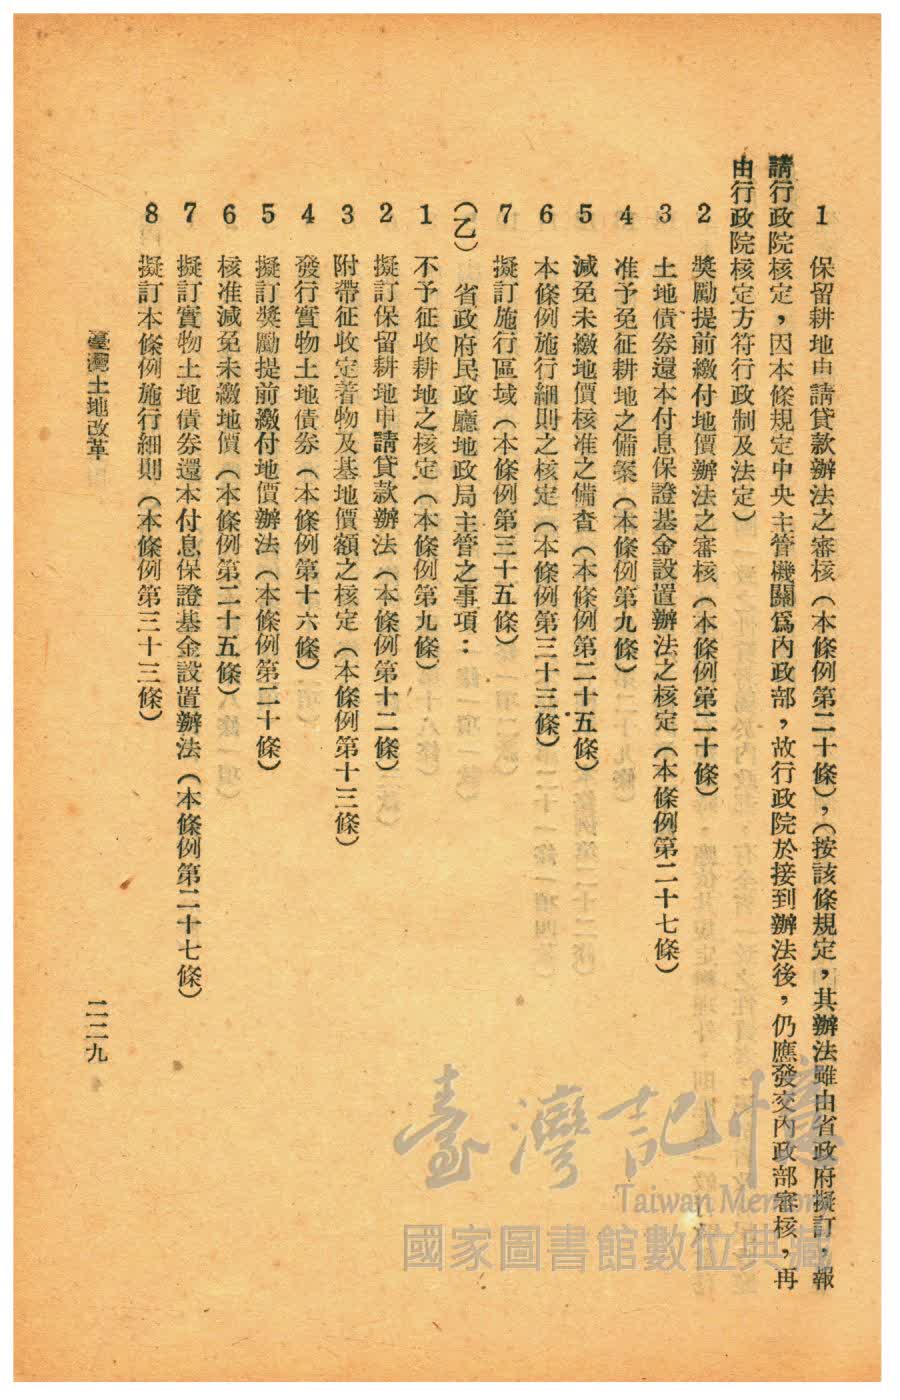 1　保留耕地申請貸款辦法之審核（本條例第二十條），（按該條規定，其辦法雖由省政府擬訂，報
請行政院核定，因本條規定中央主管機關爲內政部，故行政院於接到辦法後，仍應發交內政部審核，再
由行政院核定方符行政制及法定）
2　獎勵提前繳付地價辦法之審核（本條例第二十條）
3　土地債券還本付息保證基金設置辦法之核定（本條例第二十七條）
4　准予免征耕地之備案（本條例第九條）
5　減免未繳地價核准之備查（本條例第二十五條）
6　本條例施行細則之核定（本條例第三十三條）
7　擬訂施行區域（本條例第三十五條）
（乙）　省政府民政廳地政局主管之事項：
1　不予征收耕地之核定（本條例第九條）
2　擬訂保留耕地申請貸款辦法（本條例第十二條）
3　附帶征收定着物及基地價額之核定（本條例第十三條）
4　發行實物土地債券（本條例第十六條）
5　擬訂獎勵提前繳付地價辦法（本條例第二十條）
6　核准減免未繳地價（本條例第二十五條）
7　擬訂實物土地債券還本付息保證基金設置辦法（本條例第二十七條）
8　擬訂本條例施行細則（本條例第三十三條）
臺灣土地改革
二二九
臺灣記憶
Taiwan Memory
國家圖書館數位典藏